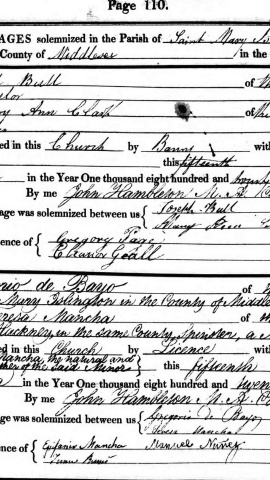 Page 110.
AGES solemnized in the Parish of Saint Mary
County of Middlesex in the
Bull of
lor
y Ann Clark of
ed in this Church by Banns with
this fifteenth
in the Year One thousand eight hundred and twenty
By me John Hambleton M. A.
age was solemnized between us { Joseph Bull
Mary
ence of { Gregory Page
Eleanor Goall
rio de Bayo of
Mary Islington in the County of Middle
resa Mancha of
Hackney in the same County, Spinster, a M
ed in this Church by Licence with
Mancha the natural and
ther of the said Minor this fifteenth
in the Year One thousand eight hundred and twen
By me John Hambleton M. A.
age was solemnized between us { Gregorio de Bayo
Teresa Mancha
ence of { Epifanio Mancha Manuel Nuñez
Juan